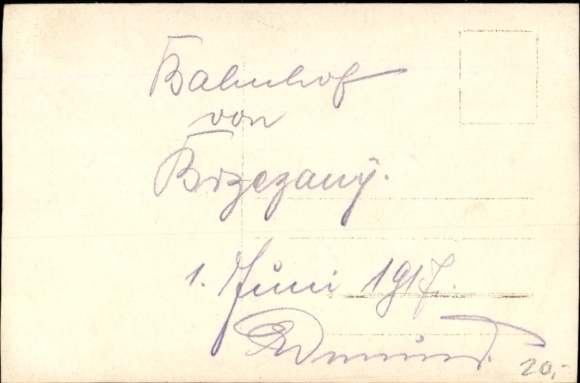 Bahnhof
von
Brzezany.
1. Juni 1917.
Edmund.
20,-